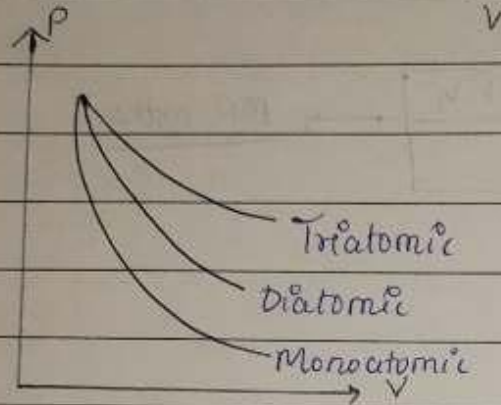 P
V
Triatomic
Diatomic
Monoatomic
V